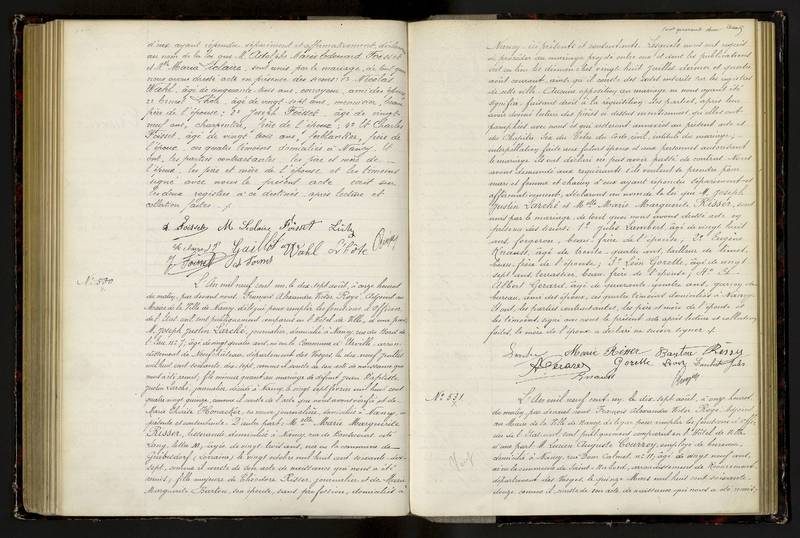 d'eux ayant répondu séparément et affirmativement, déclarons
au nom de la loi que M. Adolphe Marie Edouard Poisset
et Mlle Maria Leclaire, sont unis par le mariage, de tout quoi
nous avons dressé acte en présence des sieurs : 1° Nicolas
Wahl, âgé de cinquante trois ans, corroyeur, ami des époux,
2° Ernest Lhôte, âgé de vingt sept ans, menuisier, beau
frère de l'époux ; 3° Joseph Poisset, âgé de vingt-
neuf ans, charpentier, frère de l'époux ; 4° et Charles
Poisset, âgé de vingt trois ans, frère de
l'époux, ces quatre témoins domiciliés à Nancy. Et
ont, les parties contractantes, les père et mère de
l'époux, les père et mère de l'épouse et les témoins
signé avec nous le présent acte écrit sur
les deux registres à ce destinés, après lecture et
collation faites.
M Leclaire Poisset
Gaillot Wahl Lhôte
N° 530
L'An mil neuf cent un, le dix sept août, à onze heures
du matin, par devant nous François Alexandre Victor Rogé, Adjoint au
Maire de la Ville de Nancy, délégué pour remplir les fonctions d'officier
de l'Etat civil, sont publiquement comparus en l'Hôtel de Ville, d'une part,
M. Joseph Justin Larché, journalier, domicilié à Nancy, rue du Bord de
l'Eau N° 7, âgé de vingt quatre ans, né en la Commune d'Urville, arron-
dissement de Neufchâteau, département des Vosges, le dix neuf juillet
mil huit cent soixante dix sept, comme il conste de son acte de naissance qui
nous a été remis ; fils mineur quant au mariage de défunt Jean Baptiste
Justin Larché, journalier, décédé à Nancy, le vingt sept février mil huit cent
quatre vingt quinze, comme il conste de l'acte que nous avons vérifié et de
Marie Thérèse sa veuve, journalière, domiciliée à Nancy,
présente et consentante. D'autre part : Mlle Marie Marguerite
Risser, domiciliée à Nancy, rue de
âgée de vingt trois ans, née en la commune de
Lorraine, le vingt octobre mil huit cent soixante dix-
sept, comme il conste de son acte de naissance qui nous a été
remis ; fille majeure de Théodore Risser, journalier et de Marie
Marguerite Barton, son épouse, sans profession, domiciliés à
Nancy, ici présents et consentants. Lesquels nous ont requis
de procéder au mariage projeté entre eux et dont les publications
ont eu lieu les dimanches vingt huit juillet dernier et quatre
août courant, ainsi qu'il conste des actes insérés sur les registres
de cette ville. Aucune opposition au mariage ne nous ayant été
signifiée, faisant droit à la réquisition des parties, après leur
avoir donné lecture des pièces ci dessus mentionnées, qu'elles ont
paraphées avec nous et qui resteront annexées au présent acte et
du Chapitre Six du Titre du Code civil, intitulé du mariage,
interpellation faite aux futurs époux et aux personnes autorisant
le mariage ils ont déclaré ne pas avoir passé de contrat. Nous
avons demandé aux requérants s'ils veulent se prendre pour
mari et femme et chacun d'eux ayant répondu séparément et
affirmativement, déclarons au nom de la loi que M. Joseph
Justin Larché et Mlle Marie Marguerite Risser, sont
unis par le mariage, de tout quoi nous avons dressé acte en
présence des sieurs : 1° Jules Lambert, âgé de vingt huit
ans, forgeron, beau-frère de l'épouse, 2° Eugène
Renault, âgé de trente quatre ans, tailleur de limes,
beau frère de l'épouse ; 3° Léon Gorette, âgé de vingt
sept ans, terrassier, beau frère de l'épouse ; 4° et
Albert Gérard, âgé de quarante quatre ans, garçon de
bureau, ami des époux, ces quatre témoins domiciliés à Nancy.
Et ont, les parties contractantes, les père et mère de l'épouse et
les témoins signé avec nous le présent acte après lecture et collation
faites, la mère de l'époux a déclaré ne savoir signer.
Marie Risser Barton Risser
AGérard Gorette Lambert Jules
Renault
N° 531
L'An mil neuf cent un, le dix sept août, à onze heures
du matin, par devant nous François Alexandre Victor Rogé, Adjoint
au Maire de la Ville de Nancy, délégué pour remplir les fonctions d'Offi-
cier de l'Etat civil, sont publiquement comparus en l'Hôtel de Ville
d'une part M. Lucien Auguste Courroy, employé de bureau,
domicilié à Nancy, rue Dom Calmet n° 11, âgé de vingt neuf ans,
né en la commune de Saint Nabord, arrondissement de Remiremont,
département des Vosges, le quinze Mars mil huit cent soixante
douze, comme il conste de son acte de naissance qui nous a été remis,